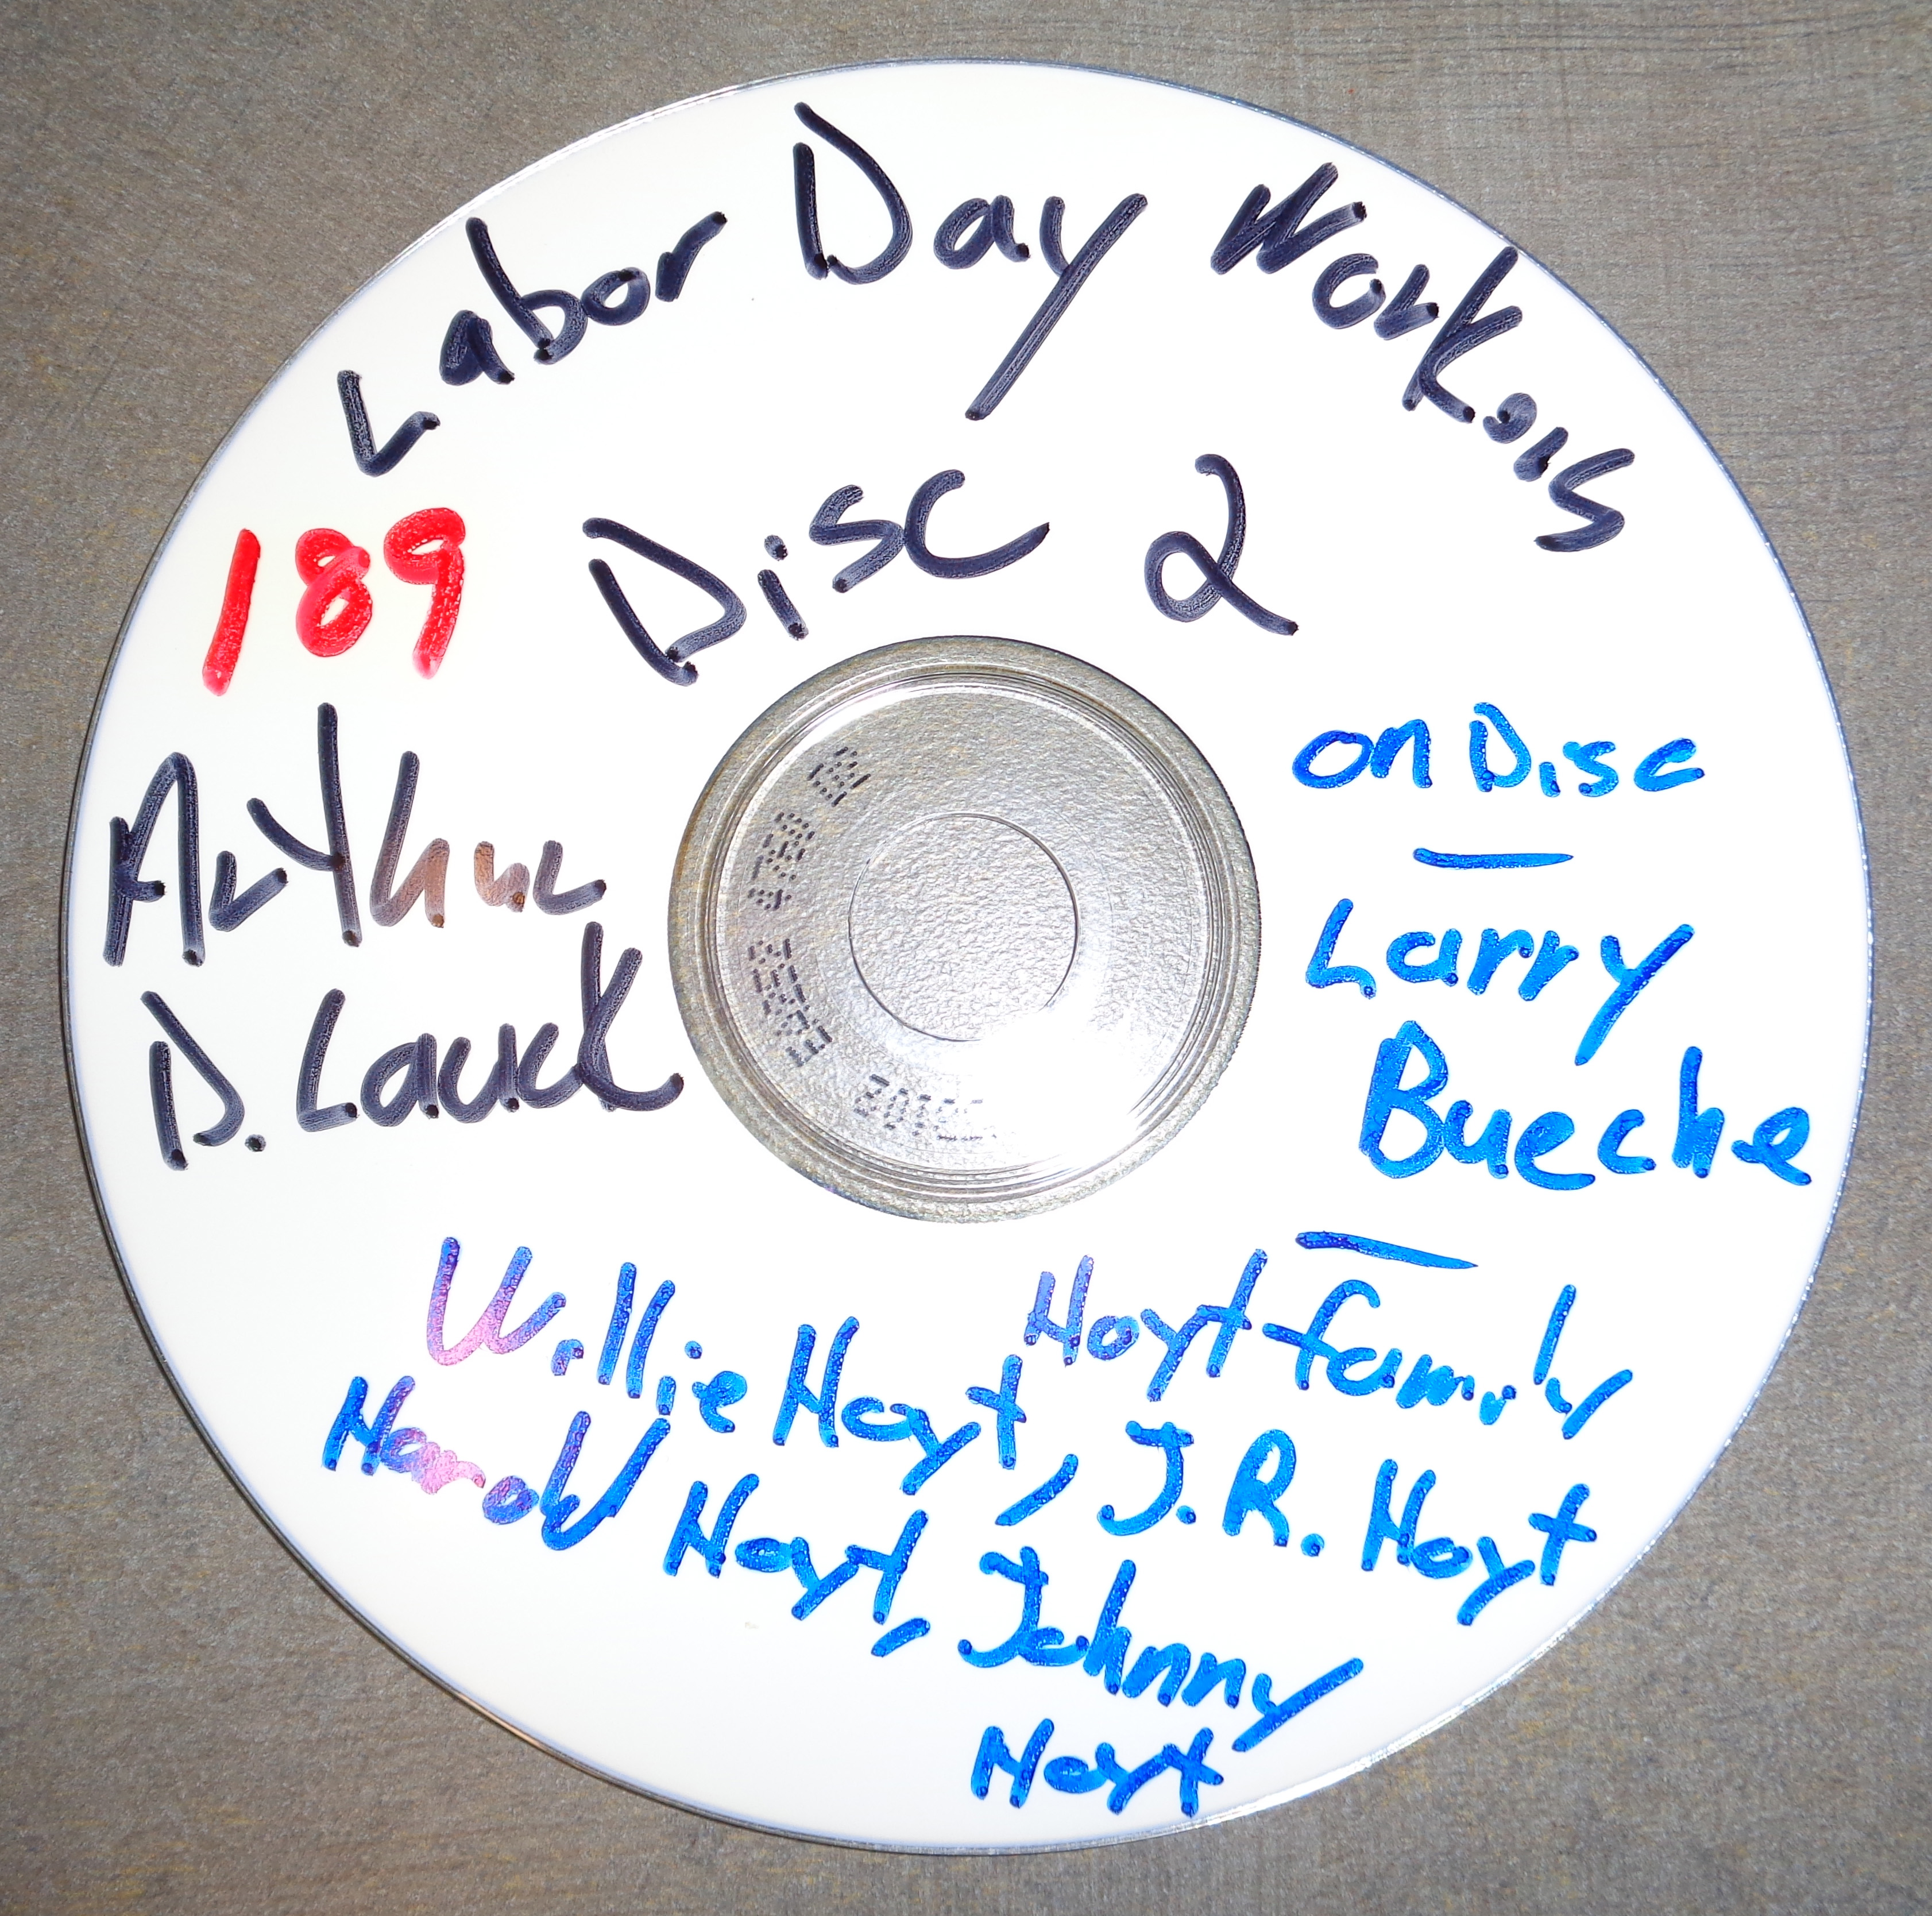 Labor Day Workers
189
Disc 2
Arthur
D. Lauck
on Disc
—
Larry
Bueche
—
Hoyt family
Willie Hoyt, J.R. Hoyt
Harold Hoyt, Johnny
Hoyt